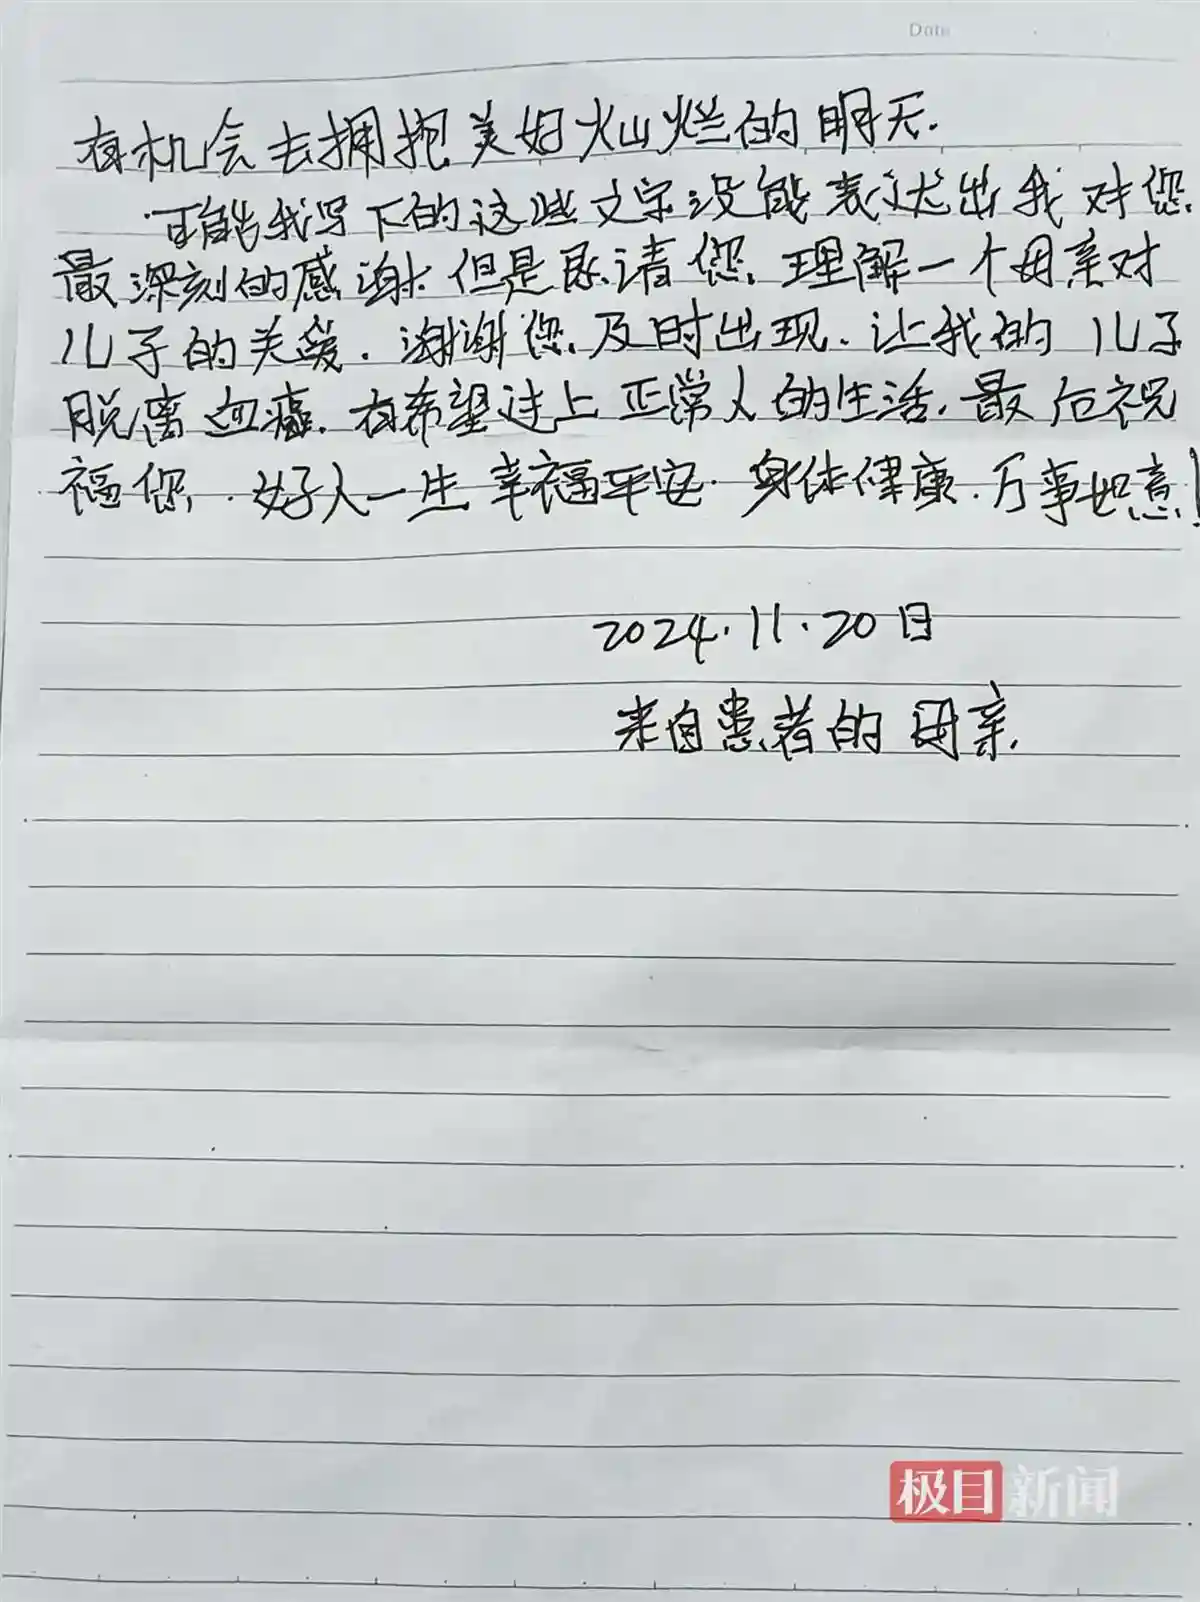 Date
有机会去拥抱美好灿烂的明天.
可能我写下的这些文字没能表达出我对您
最深刻的感谢.但是恳请您.理解一个母亲对
儿子的关爱.谢谢您.及时出现.让我的儿子
脱离血癌.有希望过上正常人的生活.最后祝
福您.好人一生幸福平安.身体健康.万事如意!
2024.11.20日
来自患者的母亲.
极目新闻